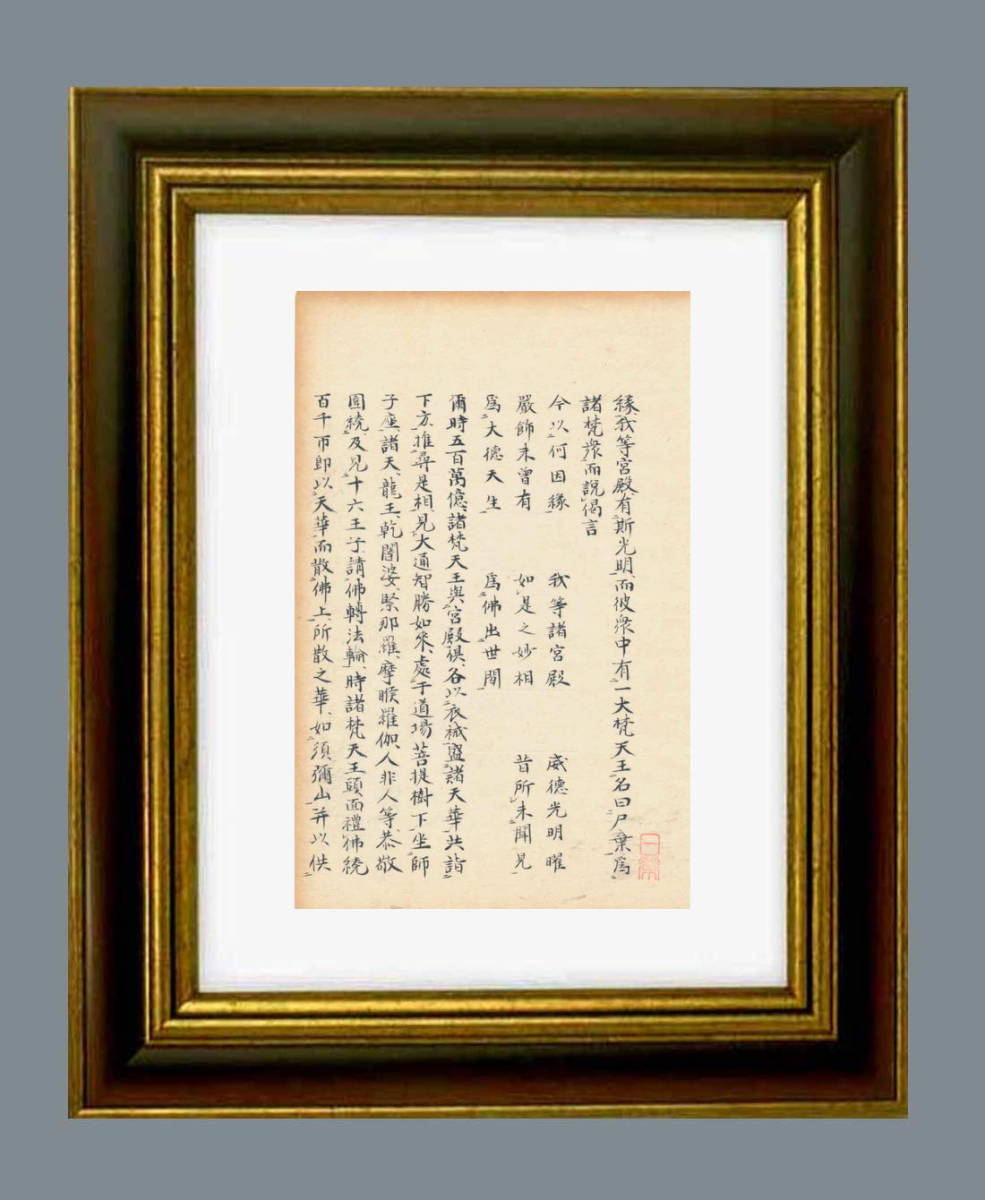 緣我等宮殿有斯光明而彼衆中有一大梵天王名曰尸棄爲
諸梵衆而說偈言
今以何因緣　我等諸宮殿　威德光明曜
嚴飾未曾有　如是之妙相　昔所未聞見
爲大德天生　爲佛出世間
爾時五百萬億諸梵天王與宮殿俱各以衣祴盛諸天華共詣
下方推尋是相見大通智勝如來處于道場菩提樹下坐師
子座諸天龍王乾闥婆緊那羅摩睺羅伽人非人等恭敬
圍繞及見十六王子請佛轉法輪時諸梵天王頭面禮佛繞
百千帀即以天華而散佛上所散之華如須彌山并以供